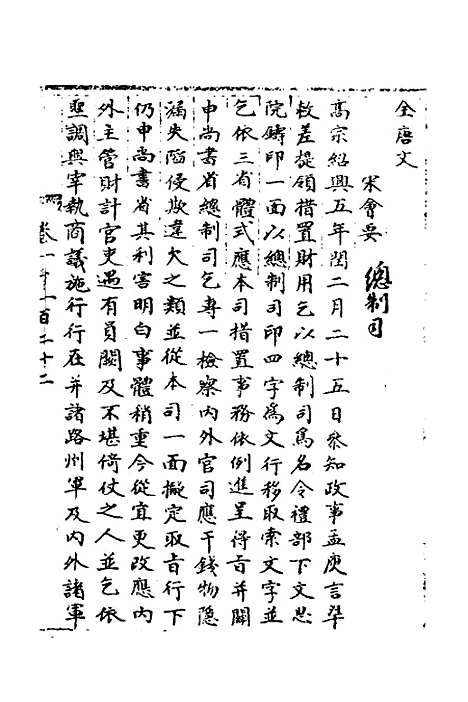 全唐文
宋會要
總制司
高宗紹興五年閏二月二十五日參知政事孟庾言準
敕差提領措置財用乞以總制司爲名令禮部下文思
院鑄印一面以總制司印四字爲文行移取索文字並
乞依三省體式應本司措置事務依例進呈得旨并關
申尚書省總制司乞專一檢察內外官司應干錢物隱
漏失陷侵欺違欠之類並從本司一面擬定取旨行下
仍申尚書省其利害明白事體稍重令從宜更改應內
外主管財計官吏遇有員闕及不堪倚仗之人並乞依
聖調與宰執商議施行行在并諸路州軍及內外諸軍
卷一千一百二十二